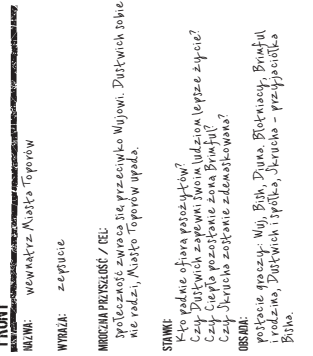 FRONT
NAZWA: wewnątrz Miasta Toporów
WYRAŻA: zepsucie
MROCZNA PRZYSZŁOŚĆ / CEL:
społeczność zwraca się przeciwko Wujowi. Dustwich sobie
nie radzi, Miasto Toporów upada.
STAWKI:
Kto padnie ofiarą pasożytów?
Czy Dustwich zapewni swoim ludziom lepsze życie?
Czy Ciepła pozostanie żoną Brimful?
Czy Skrucha zostanie zdemaskowana?
OBSADA:
postacie graczy: Wuj, Bish, Diuna. Błotniacy, Brimful
i rodzina, Dustwich i spółka, Skrucha - przyjaciółka
Bisha.